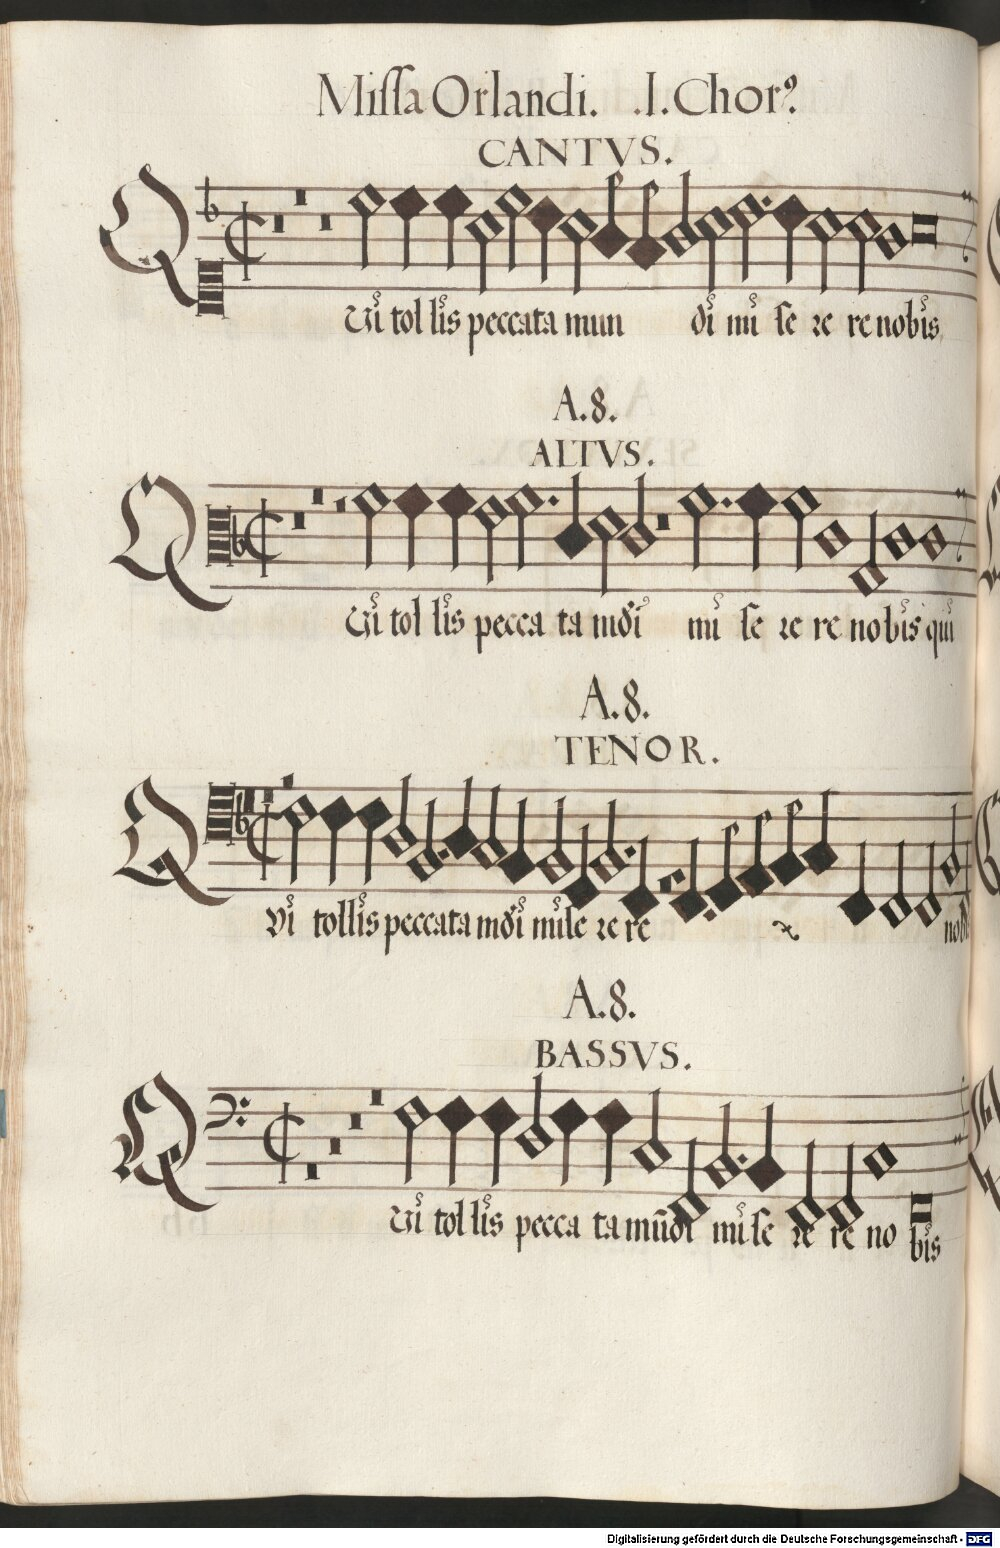 Missa Orlandi. .I. Chor9.
CANTVS.
QVi tol lis peccata mun di mi se re re nobis.
A.8.
ALTVS.
QVi tol lis pecca ta mūdi mi se re re nobis qui
A.8.
TENOR.
QVi tollis peccata mūdi mise re re nobi
A.8.
BASSVS.
QVi tol lis pecca ta mūdi mi se re re no
bis
Digitalisierung gefördert durch die Deutsche Forschungsgemeinschaft - DFG